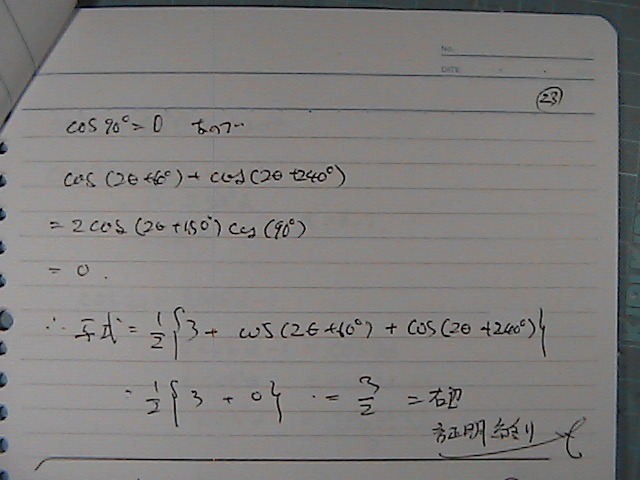 No.
DATE
㉓
cos 90° = 0 なので
cos (2θ+60°) + cos (2θ+240°)
= 2 cos (2θ+150°) cos (90°)
= 0.
∴ 与式 = 1/2 { 3 + cos (2θ+60°) + cos (2θ+240°) }
= 1/2 { 3 + 0 } = 3/2 = 右辺
証明終り